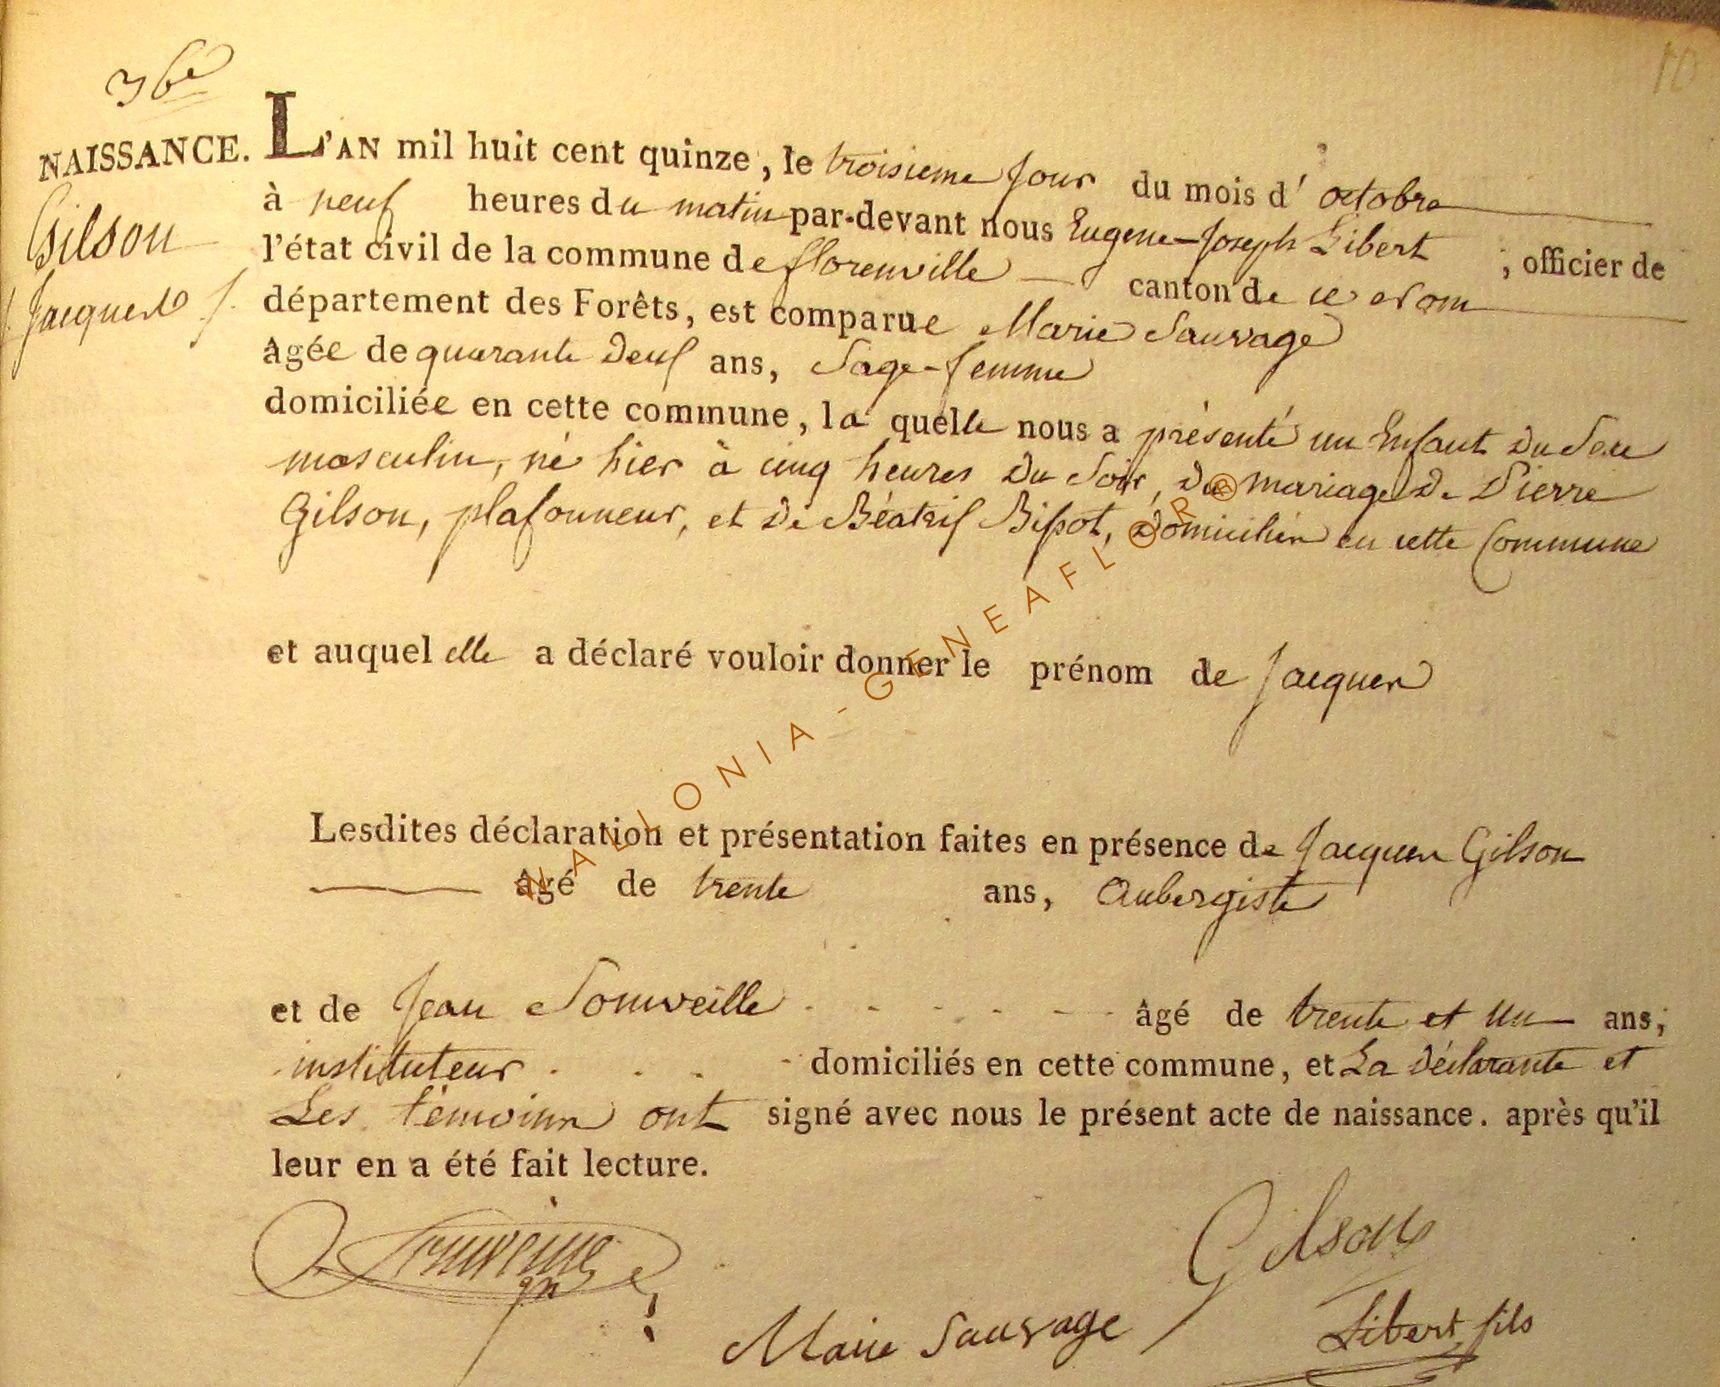 36e
10
NAISSANCE.
Gilson
Jacques
L'AN mil huit cent quinze, le troisieme Jour du mois d' octobre
à neuf heures du matin par-devant nous Eugene-Joseph Libert, officier de
l'état civil de la commune de florenville canton de ce nom
département des Forêts, est comparue Marie Sauvage
âgée de quarante deux ans, Sage-femme
domiciliée en cette commune, la quelle nous a présenté un Enfant Du Sexe
masculin, né hier à cinq heures Du Soir, du mariage De Pierre
Gilson, plafonneur, et De Béatrix Bissot, Domiciliés en cette Commune
et auquel elle a déclaré vouloir donner le prénom de Jacques
Lesdites déclaration et présentation faites en présence de Jacques Gilson
âgé de trente ans, Aubergiste
et de Jean Somveille âgé de trente et un ans,
instituteur domiciliés en cette commune, et La Déclarante et
Les témoins ont signé avec nous le présent acte de naissance. après qu'il
leur en a été fait lecture.
Gilson
Marie Sauvage
Libert fils
WALLONIA-GENEAFLOR®